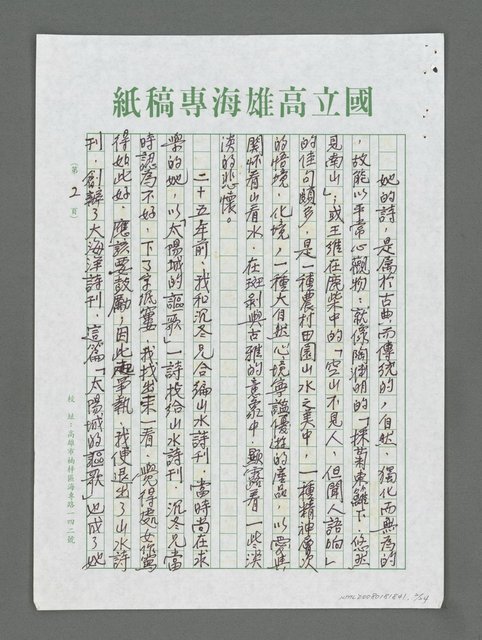 國立高雄海專稿紙
她的詩，是屬於古典而傳統的，自然、獨化而無為的
，故能以平常心觀物；就像陶淵明的「採菊東籬下，悠然
見南山」；或王維在鹿柴中的「空山不見人，但聞人語响」
的佳句頗多，是一種農村田園山水之美中，一種精神層次
的悟境、化境，一種大自然心境寧謐優遊的產品，以愛
開懷看山看水，在斑剝與古雅的意象中，顯露着一些淡
淡的悲懷。
二十五年前，我和沉冬兄合編山水詩刊，當時尚在求
學的她，以「太陽城的謳歌」一詩投給山水詩刊，沉冬兄當
時認為不好，丟下了字紙簍，我找出來一看，覺得處女作寫
得如此好，應該要鼓勵，因此起爭執，我便退出了山水詩
刊，創辦了大海洋詩刊，這篇「太陽城的謳歌」也成了她
（第 2 頁）
校址：高雄市楠梓區海專路一四二號
NML20080181841
2/34